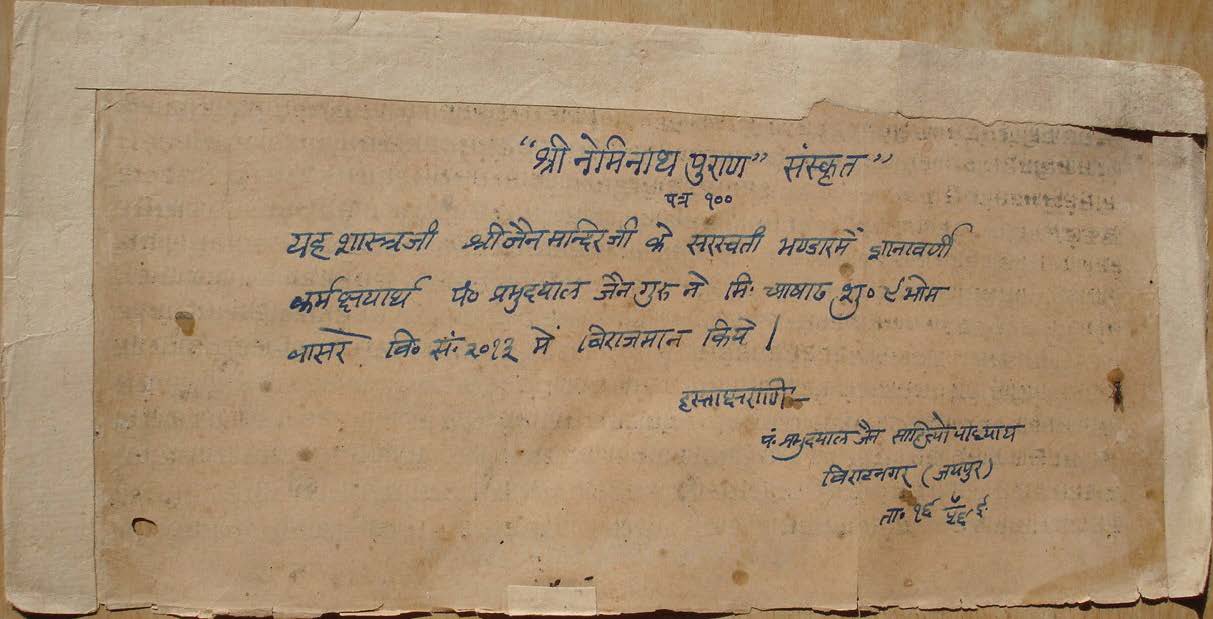 “श्री नेमिनाथ पुराण” संस्कृत”
पत्र १००
यह शास्त्रजी श्री जैन मान्दिर जी के सरस्वती भण्डारमें ज्ञानावर्णी
कर्म क्षयार्थ पं० प्रभुदयाल जैन गुरु ने मि. आषाढ शु० ९ भोम
वासरे वि० सं. २०१३ में विराजमान किये |
हस्ताक्षराणि–
पं. प्रभुदयाल जैन साहित्योपाध्याय
विराटनगर (जयपुर)
ता. १६ ५६ ई.